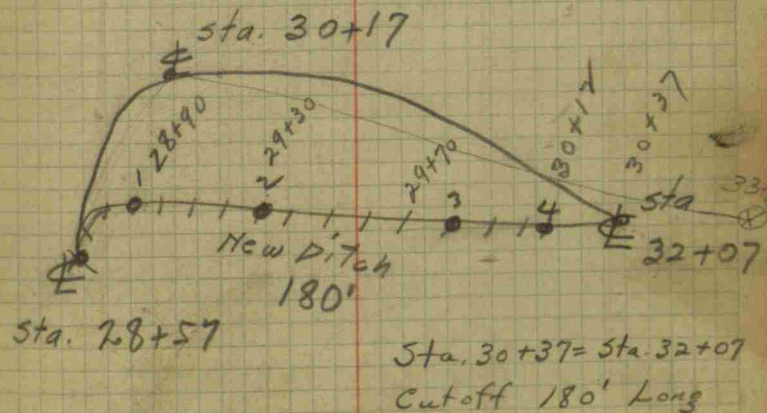 ℄ sta. 30+17
28+90
29+30
29+70
30+17
30+37
1
2
3
4
℄ sta
32+07
33
New Ditch
180'
℄
sta. 28+57
Sta. 30+37 = Sta. 32+07
Cutoff 180' Long